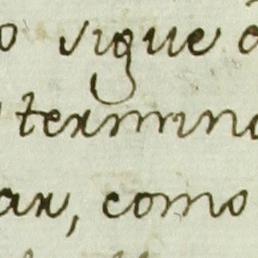 o sigue
termino
ar, como